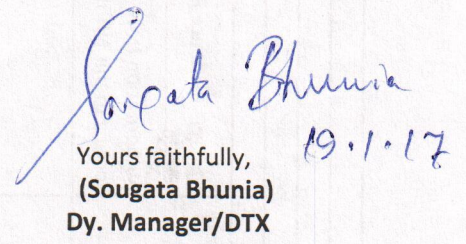 Sougata Bhunia
19.1.17
Yours faithfully,
(Sougata Bhunia)
Dy. Manager/DTX